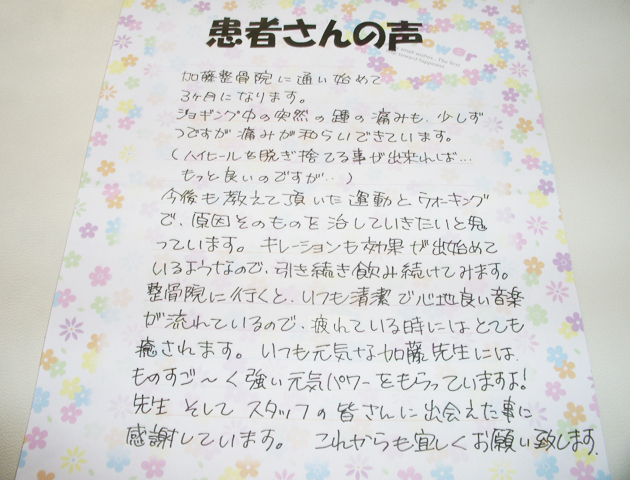 患者さんの声
加藤整骨院に通い始めて
3ヶ月になります。
ジョギング中の突然の踵の痛みも、少しず
つですが痛みが和らいできています。
(ハイヒールを脱ぎ捨てる事が出来れば…
もっと良いのですが‥)
今後も教えて頂いた運動とウォーキング
で、原因そのものを治していきたいと思
っています。キレーションも効果が出始めて
いるようなので、引き続き飲み続けてみます。
整骨院に行くと、いつも清潔で心地良い音楽
が流れているので、疲れている時にはとても
癒されます。いつも元気な加藤先生には、
ものすご〜く強い元気パワーをもらっていますよ!
先生そしてスタッフの皆さんに出会えた事に
感謝しています。これからも宜しくお願い致します。